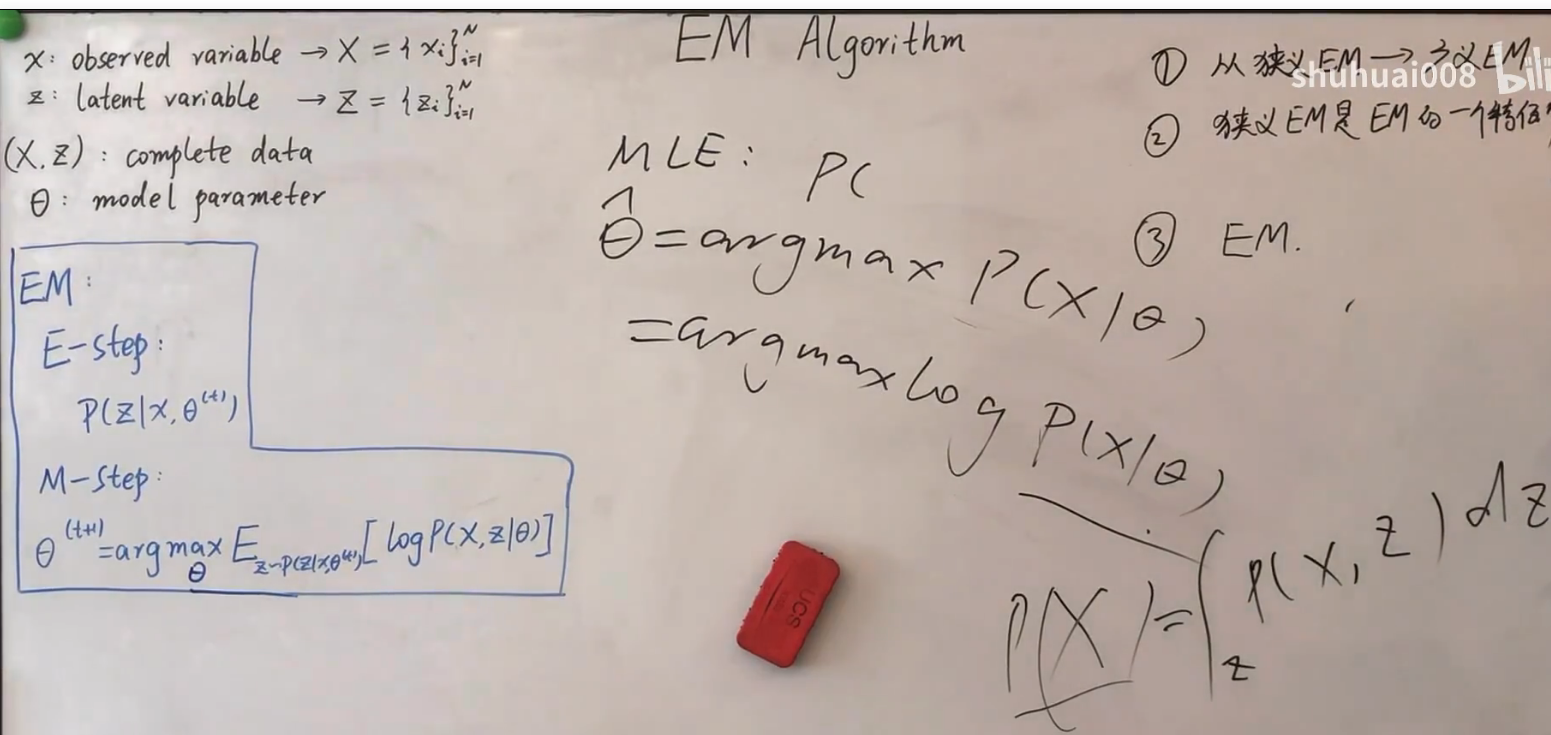 x: observed variable → X = {xi}ᵢ₌₁ᴺ
z: latent variable → Z = {zi}ᵢ₌₁ᴺ
(X, Z): complete data
θ: model parameter
EM:
E-step:
P(Z|X, θ⁽ᵗ⁾)
M-step:
θ⁽ᵗ⁺¹⁾ = arg max_θ E_{z~P(Z|X,θ⁽ᵗ⁾)} [log P(X, Z|θ)]
EM Algorithm
MLE: P(
θ̂ = argmax P(X|θ)
= argmax log P(X|θ)
P(X) = ∫_z P(X, z) dz
① 从狭义EM → 广义EM
② 狭义EM是EM的一个特
③ EM.
shuhuai008 bili
UCS